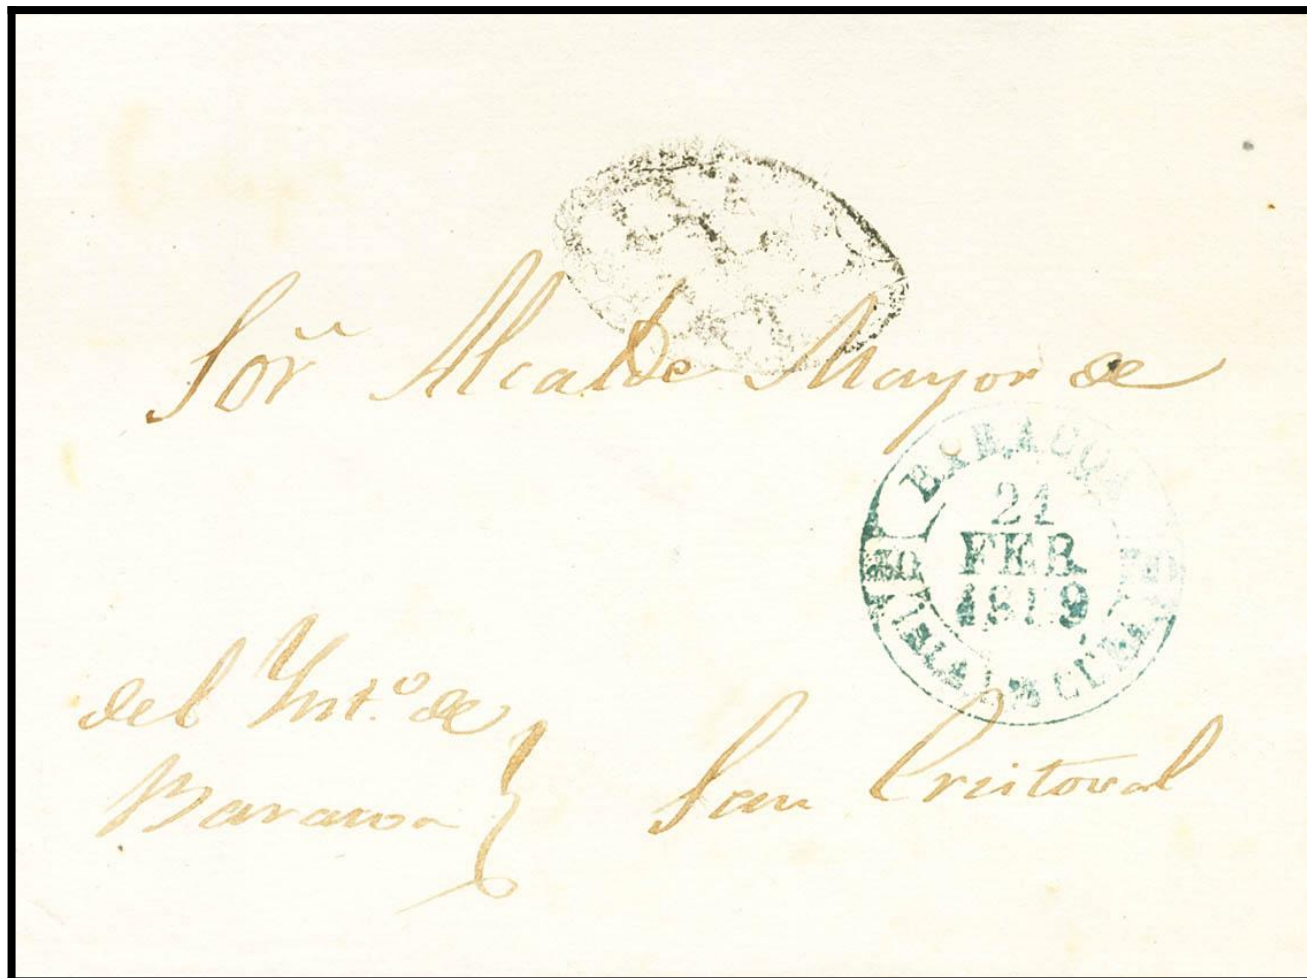 Sor Alcalde Mayor de
BARACOA
21
FEB
1859
del Ynt.o de
Baracoa
San Cristoval